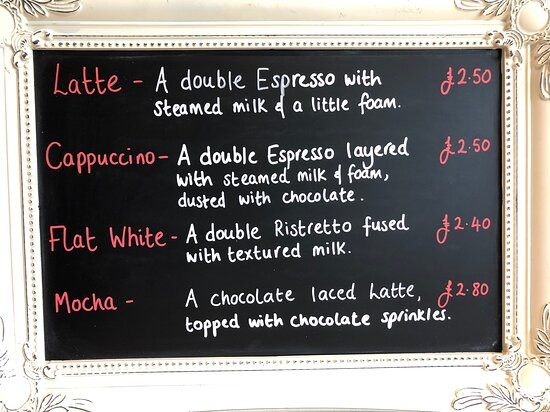 Latte - A double Espresso with £2.50
steamed milk & a little foam.
Cappuccino - A double Espresso layered £2.50
with steamed milk & foam,
dusted with chocolate.
Flat White - A double Ristretto fused £2.40
with textured milk.
Mocha - A chocolate laced Latte, £2.80
topped with chocolate sprinkles.